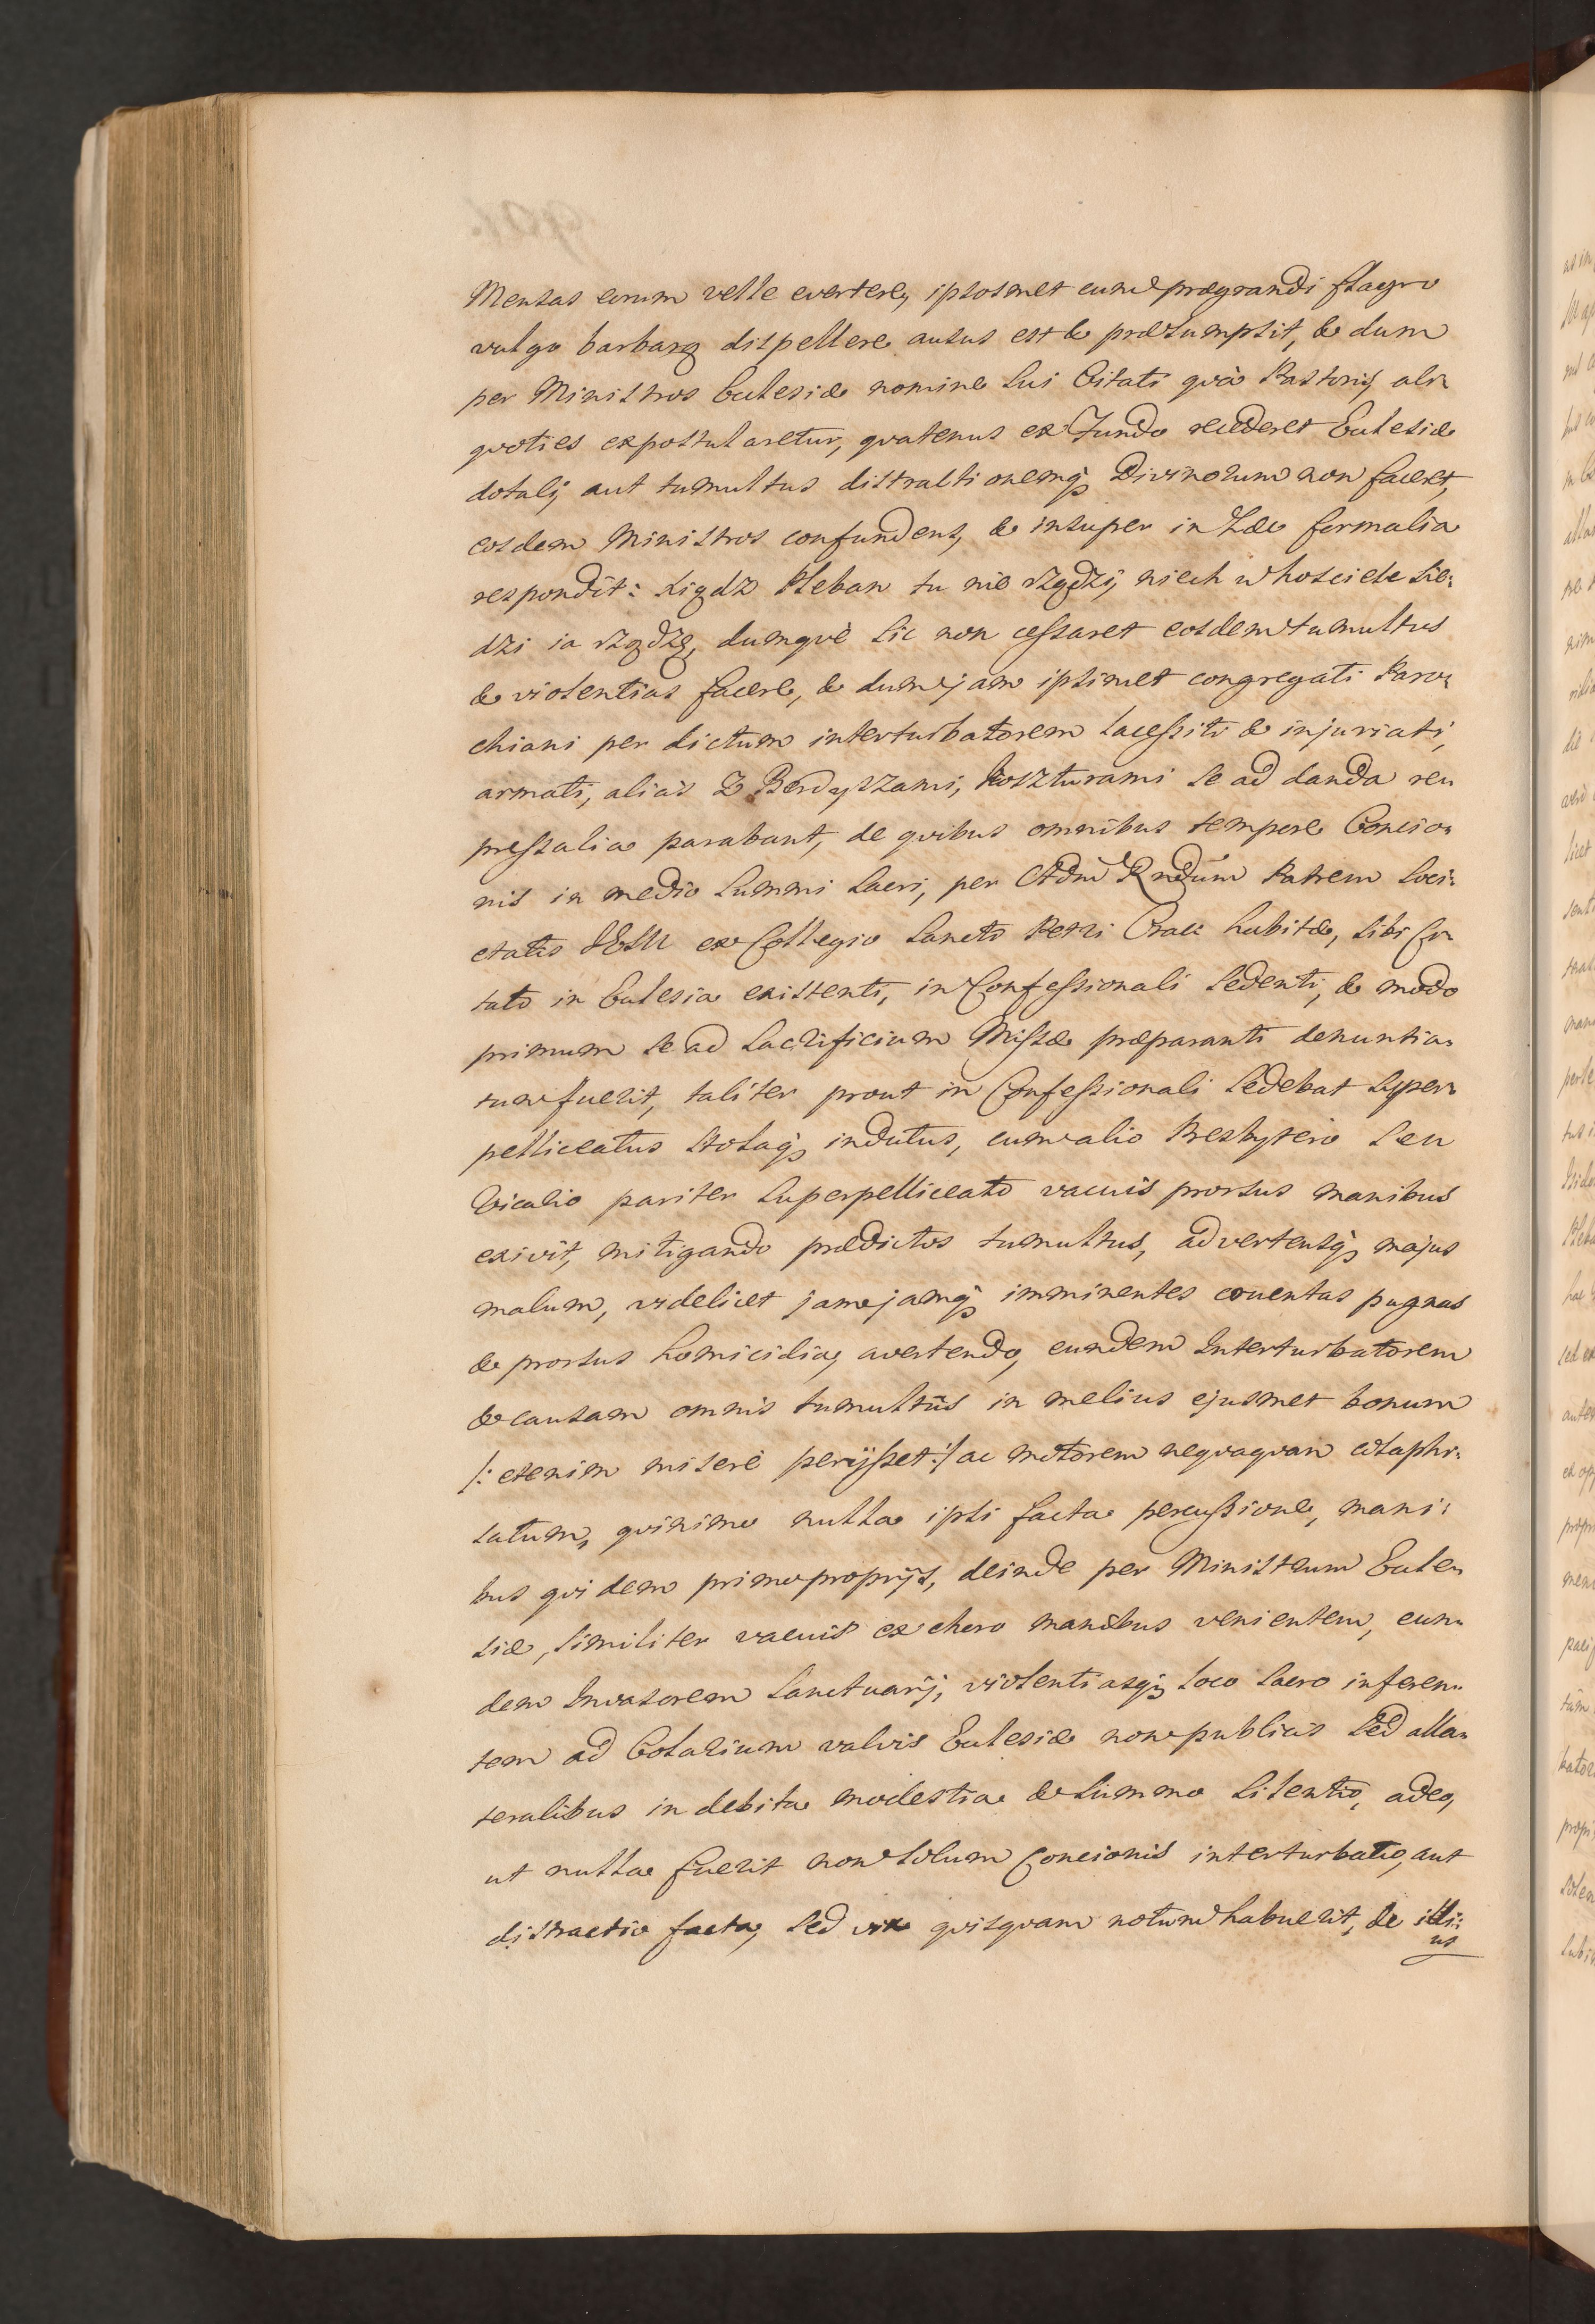 Mensas eorum velle evertere, ipsosmet cum prægrandi flagro
vulgo barbarą dispellere ausus est & præsumpsit, & dum
per Ministros Ecclesiæ nomine sui Citati quà Pastoris, ali„
quoties expostularetur, quatenus ex Fundo recederet Ecclesiæ
dotali, aut tumultus distractionemq̃ Divinorum non faceret,
eosdem Ministros confundens, & insuper in hæc formalia
respondit: Xiądz Pleban tu nie rządzi, niech w kosciele sie:
dzi ia rządzę, dumquè sic non cessaret eosdem tumultus
& violentias facere, & dum jam ipsimet congregati Paro„
chiani per dictum interturbatorem lacessiti & injuriati,
armati, aliàs z Berdyszami, Koszturami se ad danda re„
pressalia parabant, de quibus omnibus tempore Concio„
nis in medio summi sacri, per Adm̃ Rndũm Patrem Soci:
etatis JESU ex Collegio Sancti Petri Crac habitæ, sibi Ci„
tato in Ecclesia existenti, in Confessionali sedenti, & modo
primum se ad sacrificium Missæ præparanti denuntia„
tum fuerit, taliter prout in Confessionali sedebat super„
pelliceatus stolaq̃ indutus, cum alio Presbytero seu
Vicario pariter superpelliceato vacuis prorsus manibus
exivit, mitigando prædictos tumultus, advertensq̃ majus
malum, videlicet jam jamq̃ imminentes cruentas pugnas
& prorsus homicidia, avertendo, eundem Interturbatorem
& causam omnis tumultũs in melius ejusmet bonum
/: etenim miserè perijsset :/ ac motorem nequaquam colaphi„
satum, quinimo nulla ipsi facta percussione, mani:
bus quidem primo proprijs, deinde per Ministrum Eccle„
siæ, similiter vacuis ex choro manibus venientem, eun„
dem Invasorem Sanctuarij, violentiasq̃ loco sacro inferen„
tem ad Colarium valvis Ecclesiæ non publicis sed alla„
teralibus in debita modestia & summo silentio, adeo,
ut nulla fuerit non solum Concionis interturbatio, aut
distractio facta, sed vix quisquam notum habuerit, de illi:
us